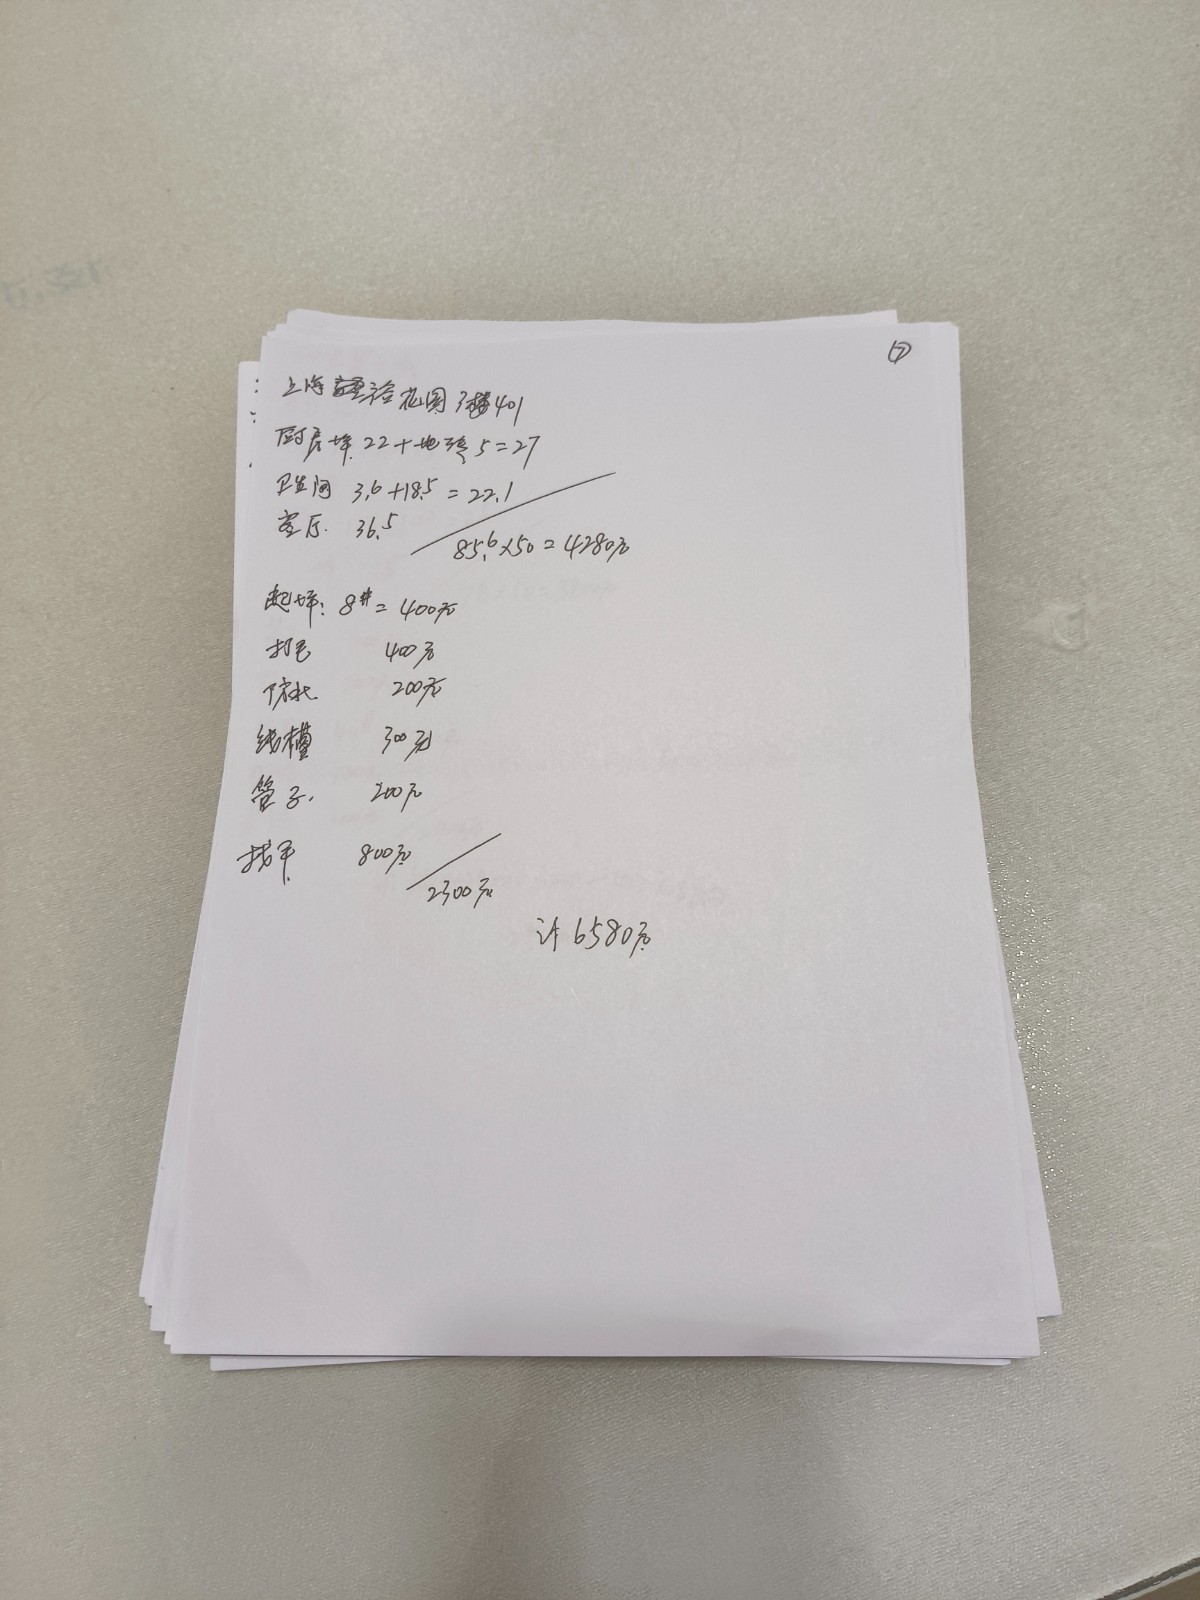 ⑰
上海 花园 3楼401
厨房墙 22+地砖 5=27
卫生间 3.6+18.5=22.1
客厅. 36.5
85.6×50=4280元
起墙: 8#=400元
打毛 400元
防水 200元
线槽 300元
管子. 200元
找平 800元
2300元
计6580元